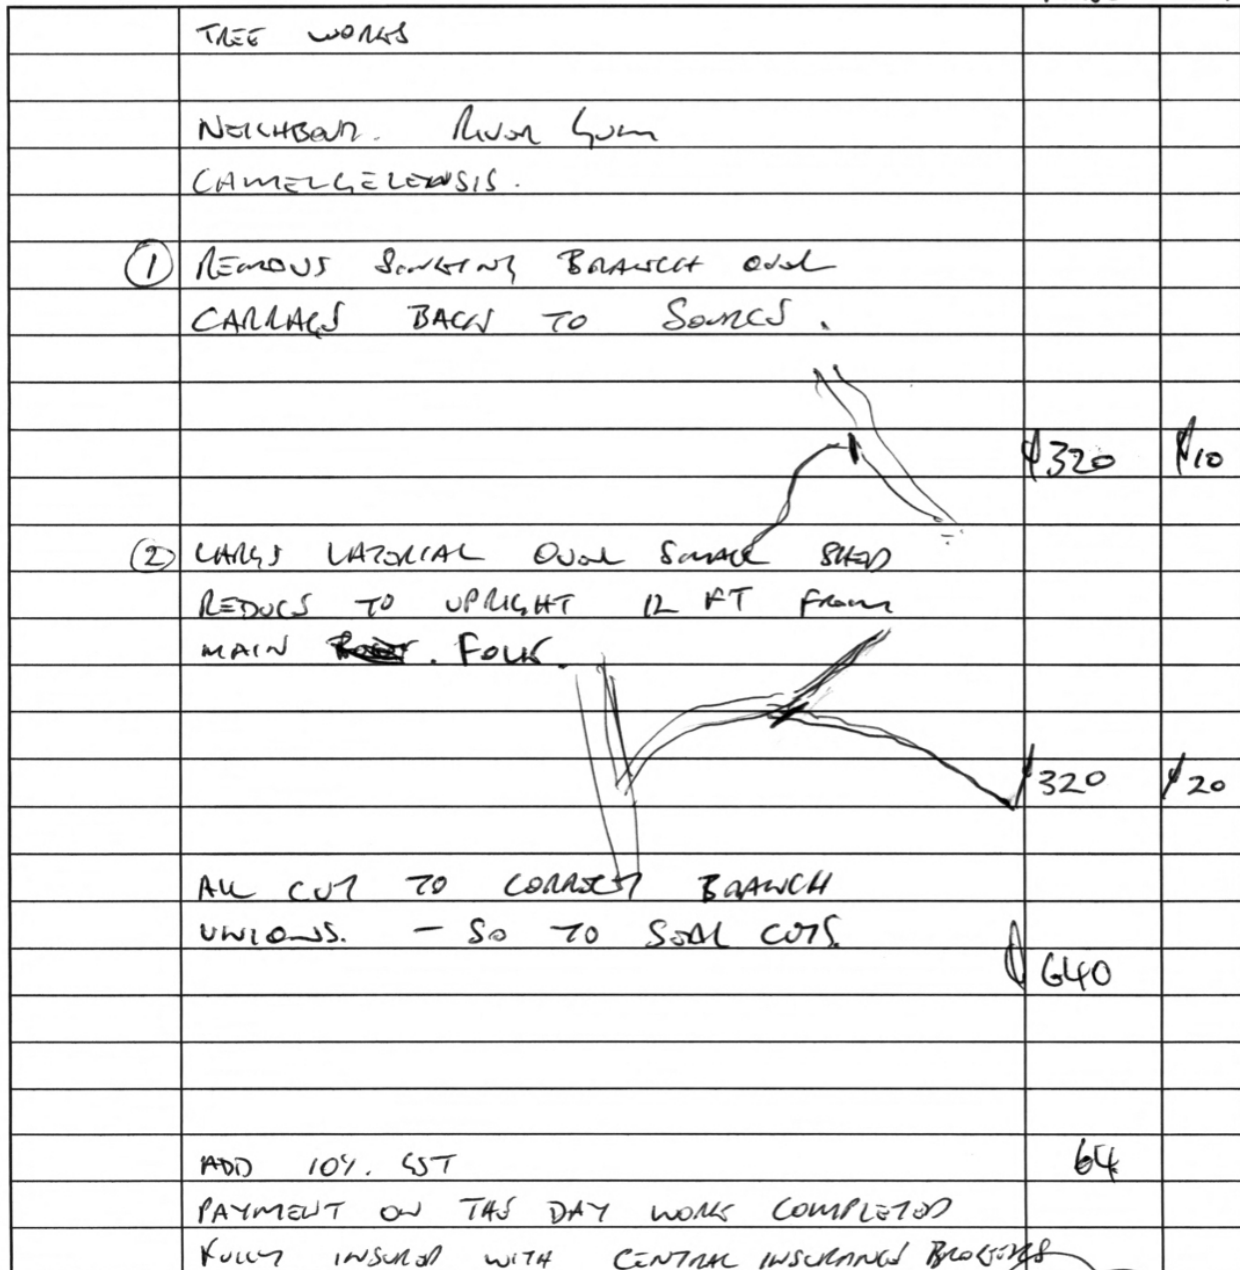 TREE WORKS
NEIGHBOUR. River Gum
CAMELGELENSIS.
① REMOVE BRANCH OVER
CARRAGE BACK TO SOURCE.
$320 $10
② LARGE LATERIAL OVER SMALL SHED
REDUCE TO UPRIGHT 12 FT From
MAIN . FORK.
$320 $20
ALL CUT TO CORRECT BRANCH
UNIONS. - SO TO SEAL CUTS.
$640
ADD 10%. GST 64
PAYMENT ON THE DAY WORK COMPLETED
FULLY INSURED WITH CENTRAL INSURANCE BROKERS